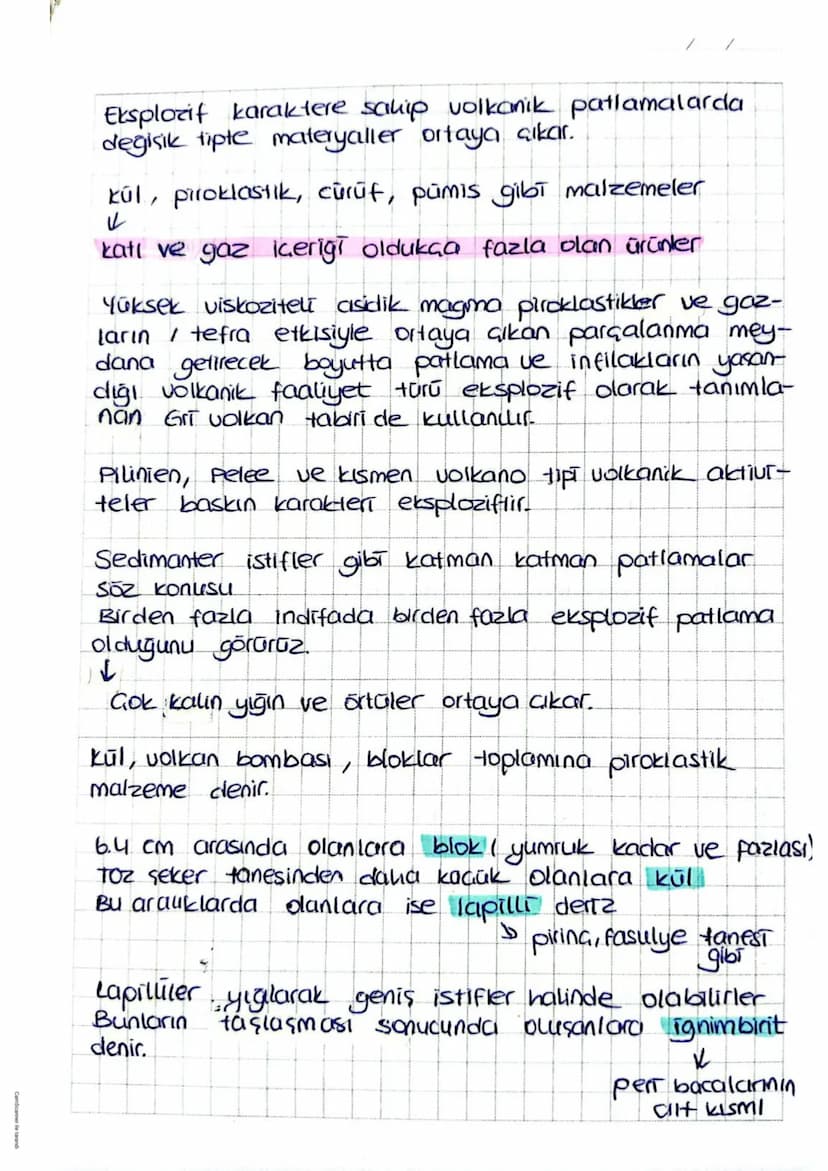 / /
Eksplozif karaktere sahip volkanik patlamalarda
değişik tipte materyaller ortaya çıkar.
Kül, piroklastik, cüruf, pümis gibi malzemeler
↓
katı ve gaz içeriği oldukça fazla olan ürünler
Yüksek viskoziteli asidik magma piroklastikler ve gaz-
ların / tefra etkisiyle ortaya çıkan parçalanma mey-
dana getirecek boyutta patlama ve infilakların yaşan-
dığı volkanik faaliyet türü eksplozif olarak tanımla-
nan Gri volkan tabiri de kullanılır.
Pilinien, Pelee ve kısmen volkano tipi volkanik aktivi-
teler baskın karakteri eksploziftir.
Sedimanter istifler gibi katman katman patlamalar
söz konusu
Birden fazla indifada birden fazla eksplozif patlama
olduğunu görürüz.
↓
Çok kalın yığın ve örtüler ortaya çıkar.
Kül, volkan bombası, bloklar toplamına piroklastik
malzeme denir.
6.4 cm arasında olanlara blok ( yumruk kadar ve fazlası)
Toz şeker tanesinden daha küçük olanlara kül
Bu aralıklarda olanlara ise lapilli deriz
↳ pirinç, fasulye tanesi
gibi
Lapilliler yığılarak geniş istifler halinde olabilirler
Bunların taşlaşması sonucunda oluşanlara ignimbirit
denir.
↓
peri bacalarının
alt kısmı
CamScanner ile tarandı